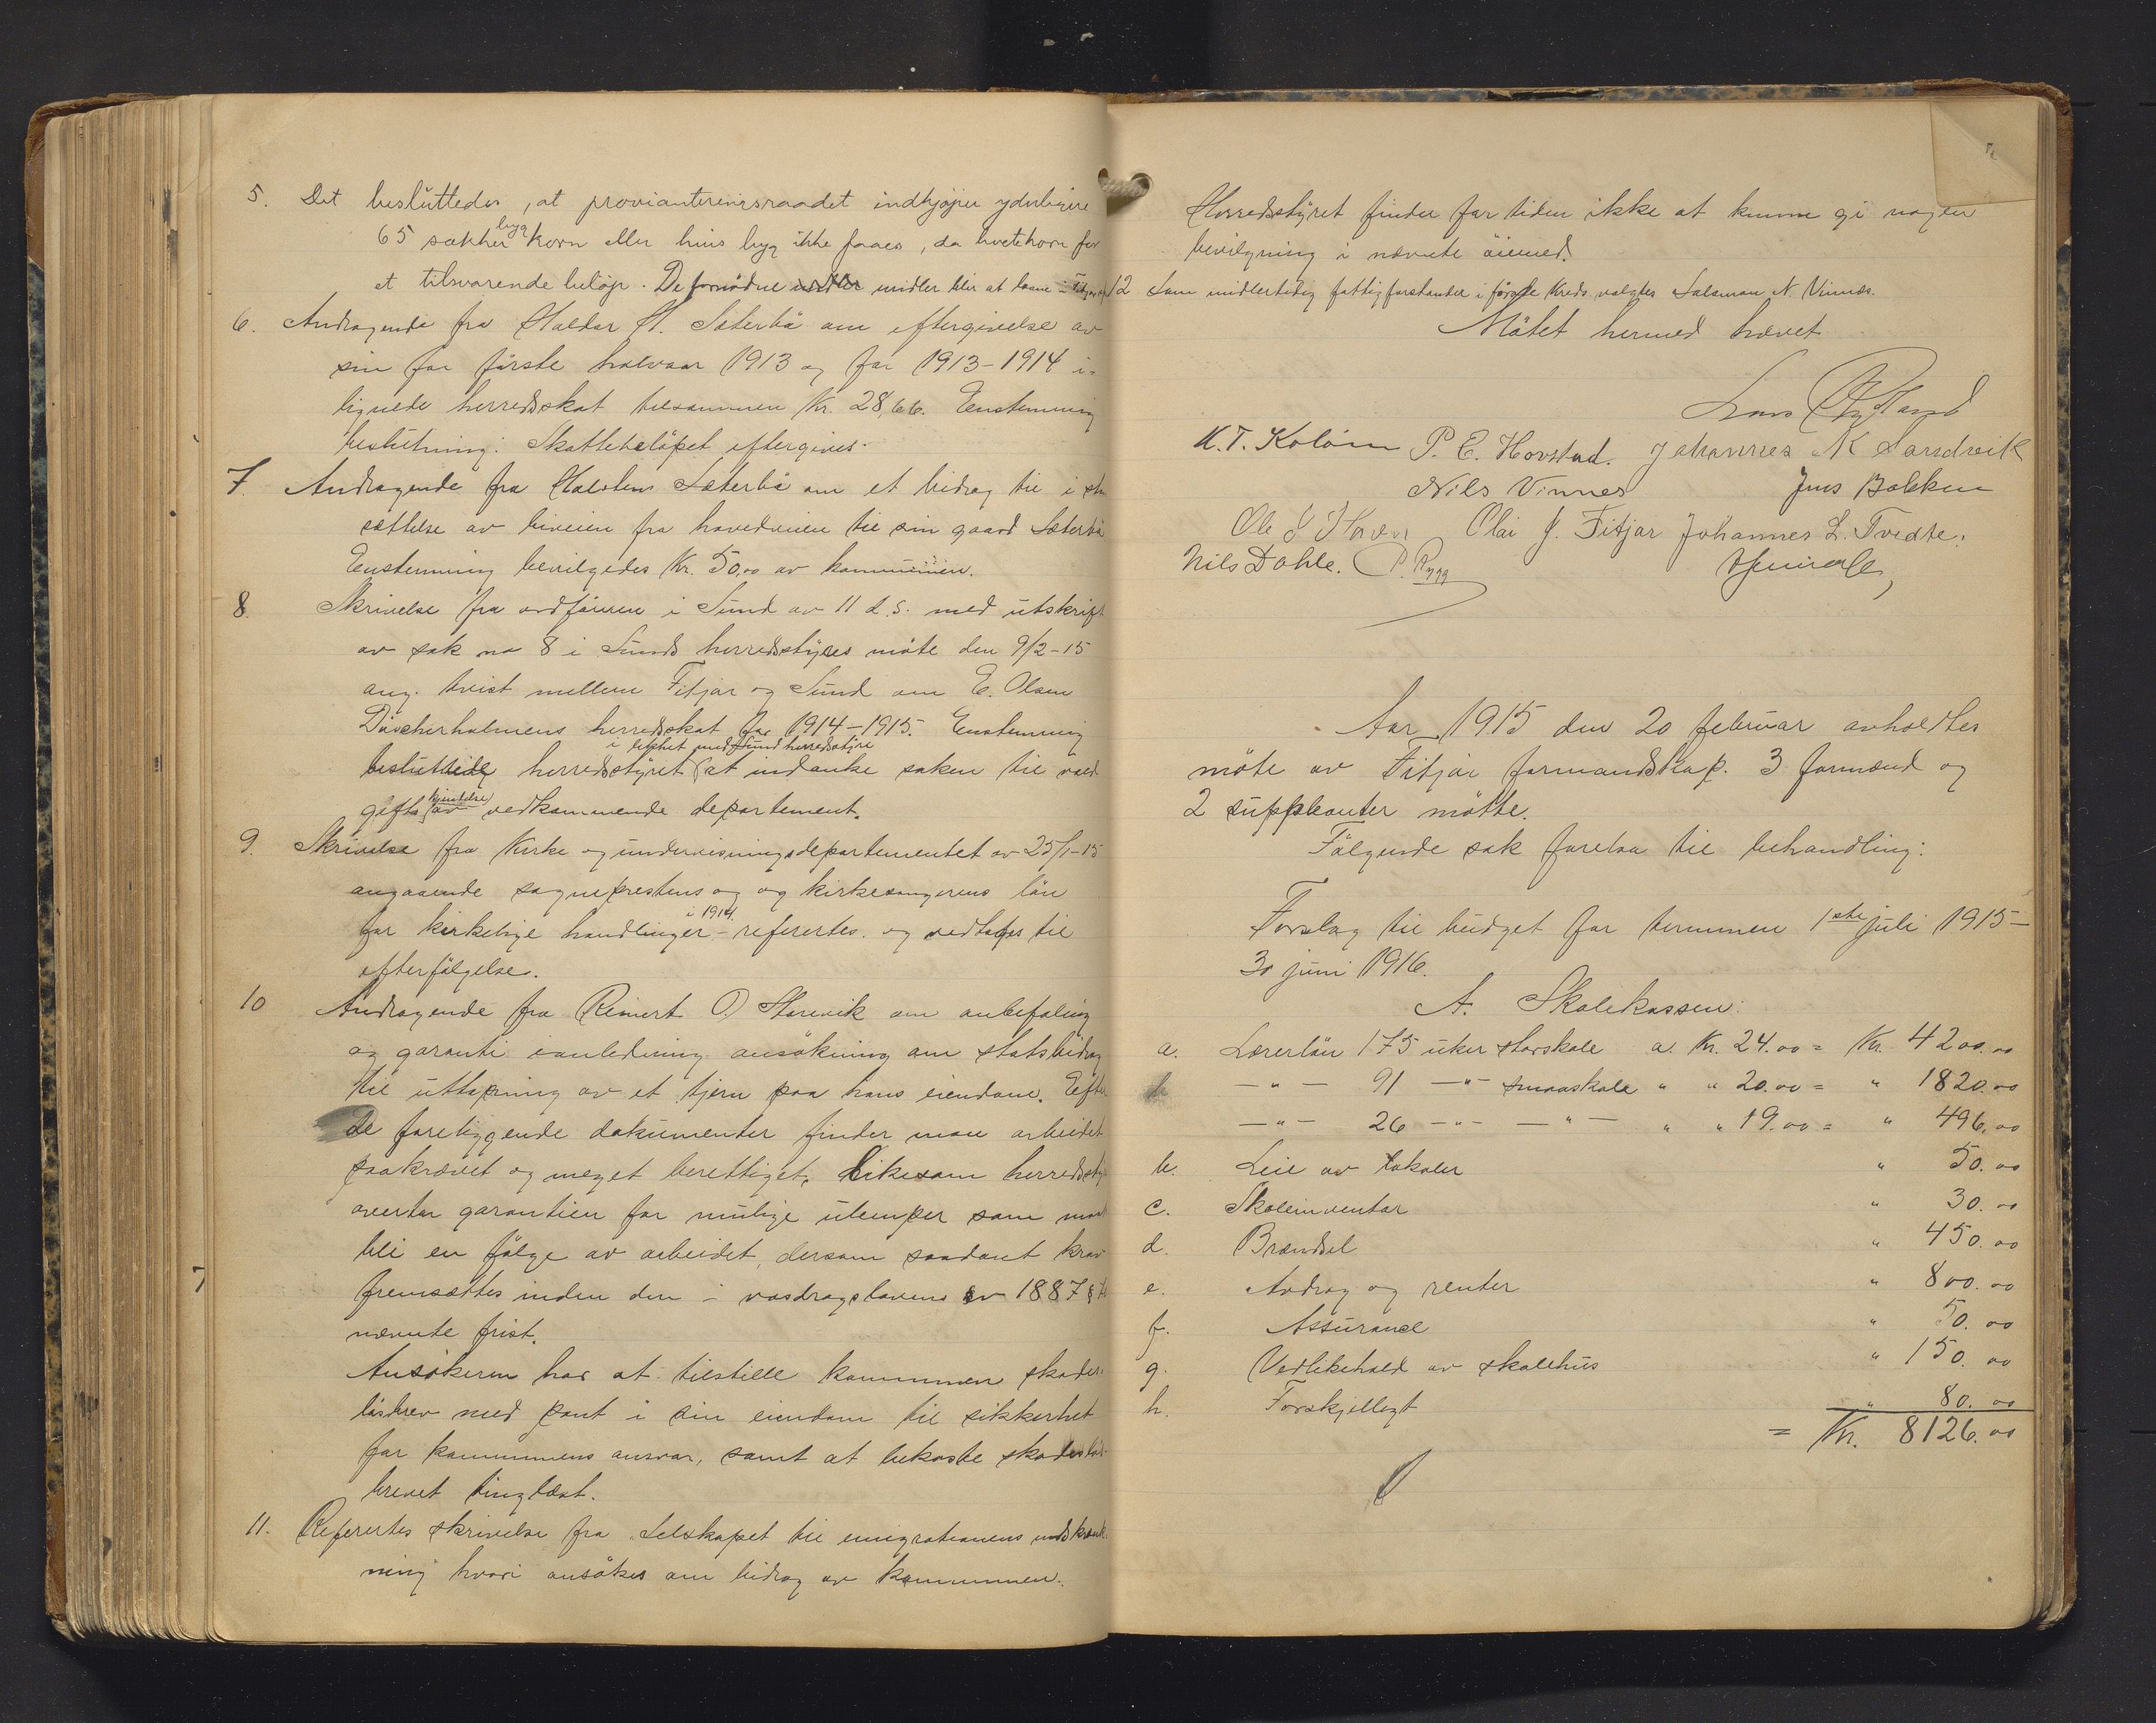 5. Det besluttedes, at provianteringsraadet indkjøper yderligere
65 sækker byg korn eller hvis byg ikke faaes, da hvetekorn for
et tilsvarende beløp. De fornødne midler blir at laane i
6. Andragende fra Haldor H. Sæterbø om eftergivelse av
sin for første halvaar 1913 og for 1913-1914 i-
lignede herredsskat tilsammen Kr. 28,66. Enstemmig
beslutning: Skattebeløpet eftergives.
7. Andragende fra Halsten Sæterbø om et bidrag til i
sættelse av biveien fra hovedveien til sin gaard Sæterbø
Enstemmig bevilgedes Kr. 50,00 av kommunen.
8. Skrivelse fra ordføreren i Sund av 11 d.s. med utskrift
av sak no 8 i Sunds herredsstyres møte den 9/2-15
ang. tvist mellem Fitjar og Sund om E. Olsen
Døscherholmens herredsskat for 1914-1915. Enstemmig
i likhet med Sund herredsstyre
besluttede herredsstyret at indanke saken til vold
gifts kjendelse av vedkommende departement.
9. Skrivelse fra Kirke og undervisningsdepartementet av 25/1-15
angaaende sogneprestens og og kirkesangerens løn
for kirkelige handlinger i 1914 - refertes og vedtages til
efterfølgelse.
10 Andragende fra Reinert O Storevik om anbefaling
og garanti i anledning ansøkning om statsbidrag
til uttapning av et tjern paa hans eiendom. Efter
de foreliggende dokumenter finder man arbeidet
paakrævet og meget berettiget, likesom herredssty
overtar garantien for mulige ulemper som maat
bli en følge av arbeidet, dersom saadant krav
fremsættes inden den i vasdragslovens av 1887 §
nævnte frist.
Ansøkeren har at tilstille kommunen skades-
løsbrev med pant i sin eiendom til sikkerhet
for kommunens ansvar, samt at bekoste skadesløs-
brevet tinglæst.
11. Refertes skrivelse fra Selskapet til emigrationens indskrænk-
ning hvori ansøkes om bidrag av kommunen.
Herredsstyret finder for tiden ikke at kunne gi nogen
bevilgning i nævnte øiemed.
12 Som midlertidig fattigforstander i første Kreds valgtes Salamon N. Vinnes.
Møtet hermed hævet
Lars Rydland
K. T. Koløen P. E. Hovstad. Johannes N Sandvik
Nils Vinnes Jens Bakken
Ole J Haven Olai J. Fitjar Johannes L. Tvedte.
Nils Dahle. P. Rygg
Aar 1915 den 20 februar avholdtes
møte av Fitjar formandskap. 3 formænd og
2 suppleanter møtte.
Følgende sak foretoges til behandling:
Forslag til budget for terminen 1ste juli 1915-
30 juni 1916.
A. Skolekassen:
a. Lærerløn 175 uker storskole a. Kr. 24.00 = Kr. 4200.00
-"- 91 -"- smaaskole " " 20.00 = " 1820.00
-"- 26 -"- -"- " " 19.00 = " 496.00
b. Leie av lokaler " 50.00
c. Skoleinventar " 30.00
d. Brændsel " 450.00
e. Avdrag og renter " 800.00
f. Assurance " 50.00
g. Vedlikehold av skolehus " 150.00
h. Forskjelligt " 80.00
= Kr. 8126.00